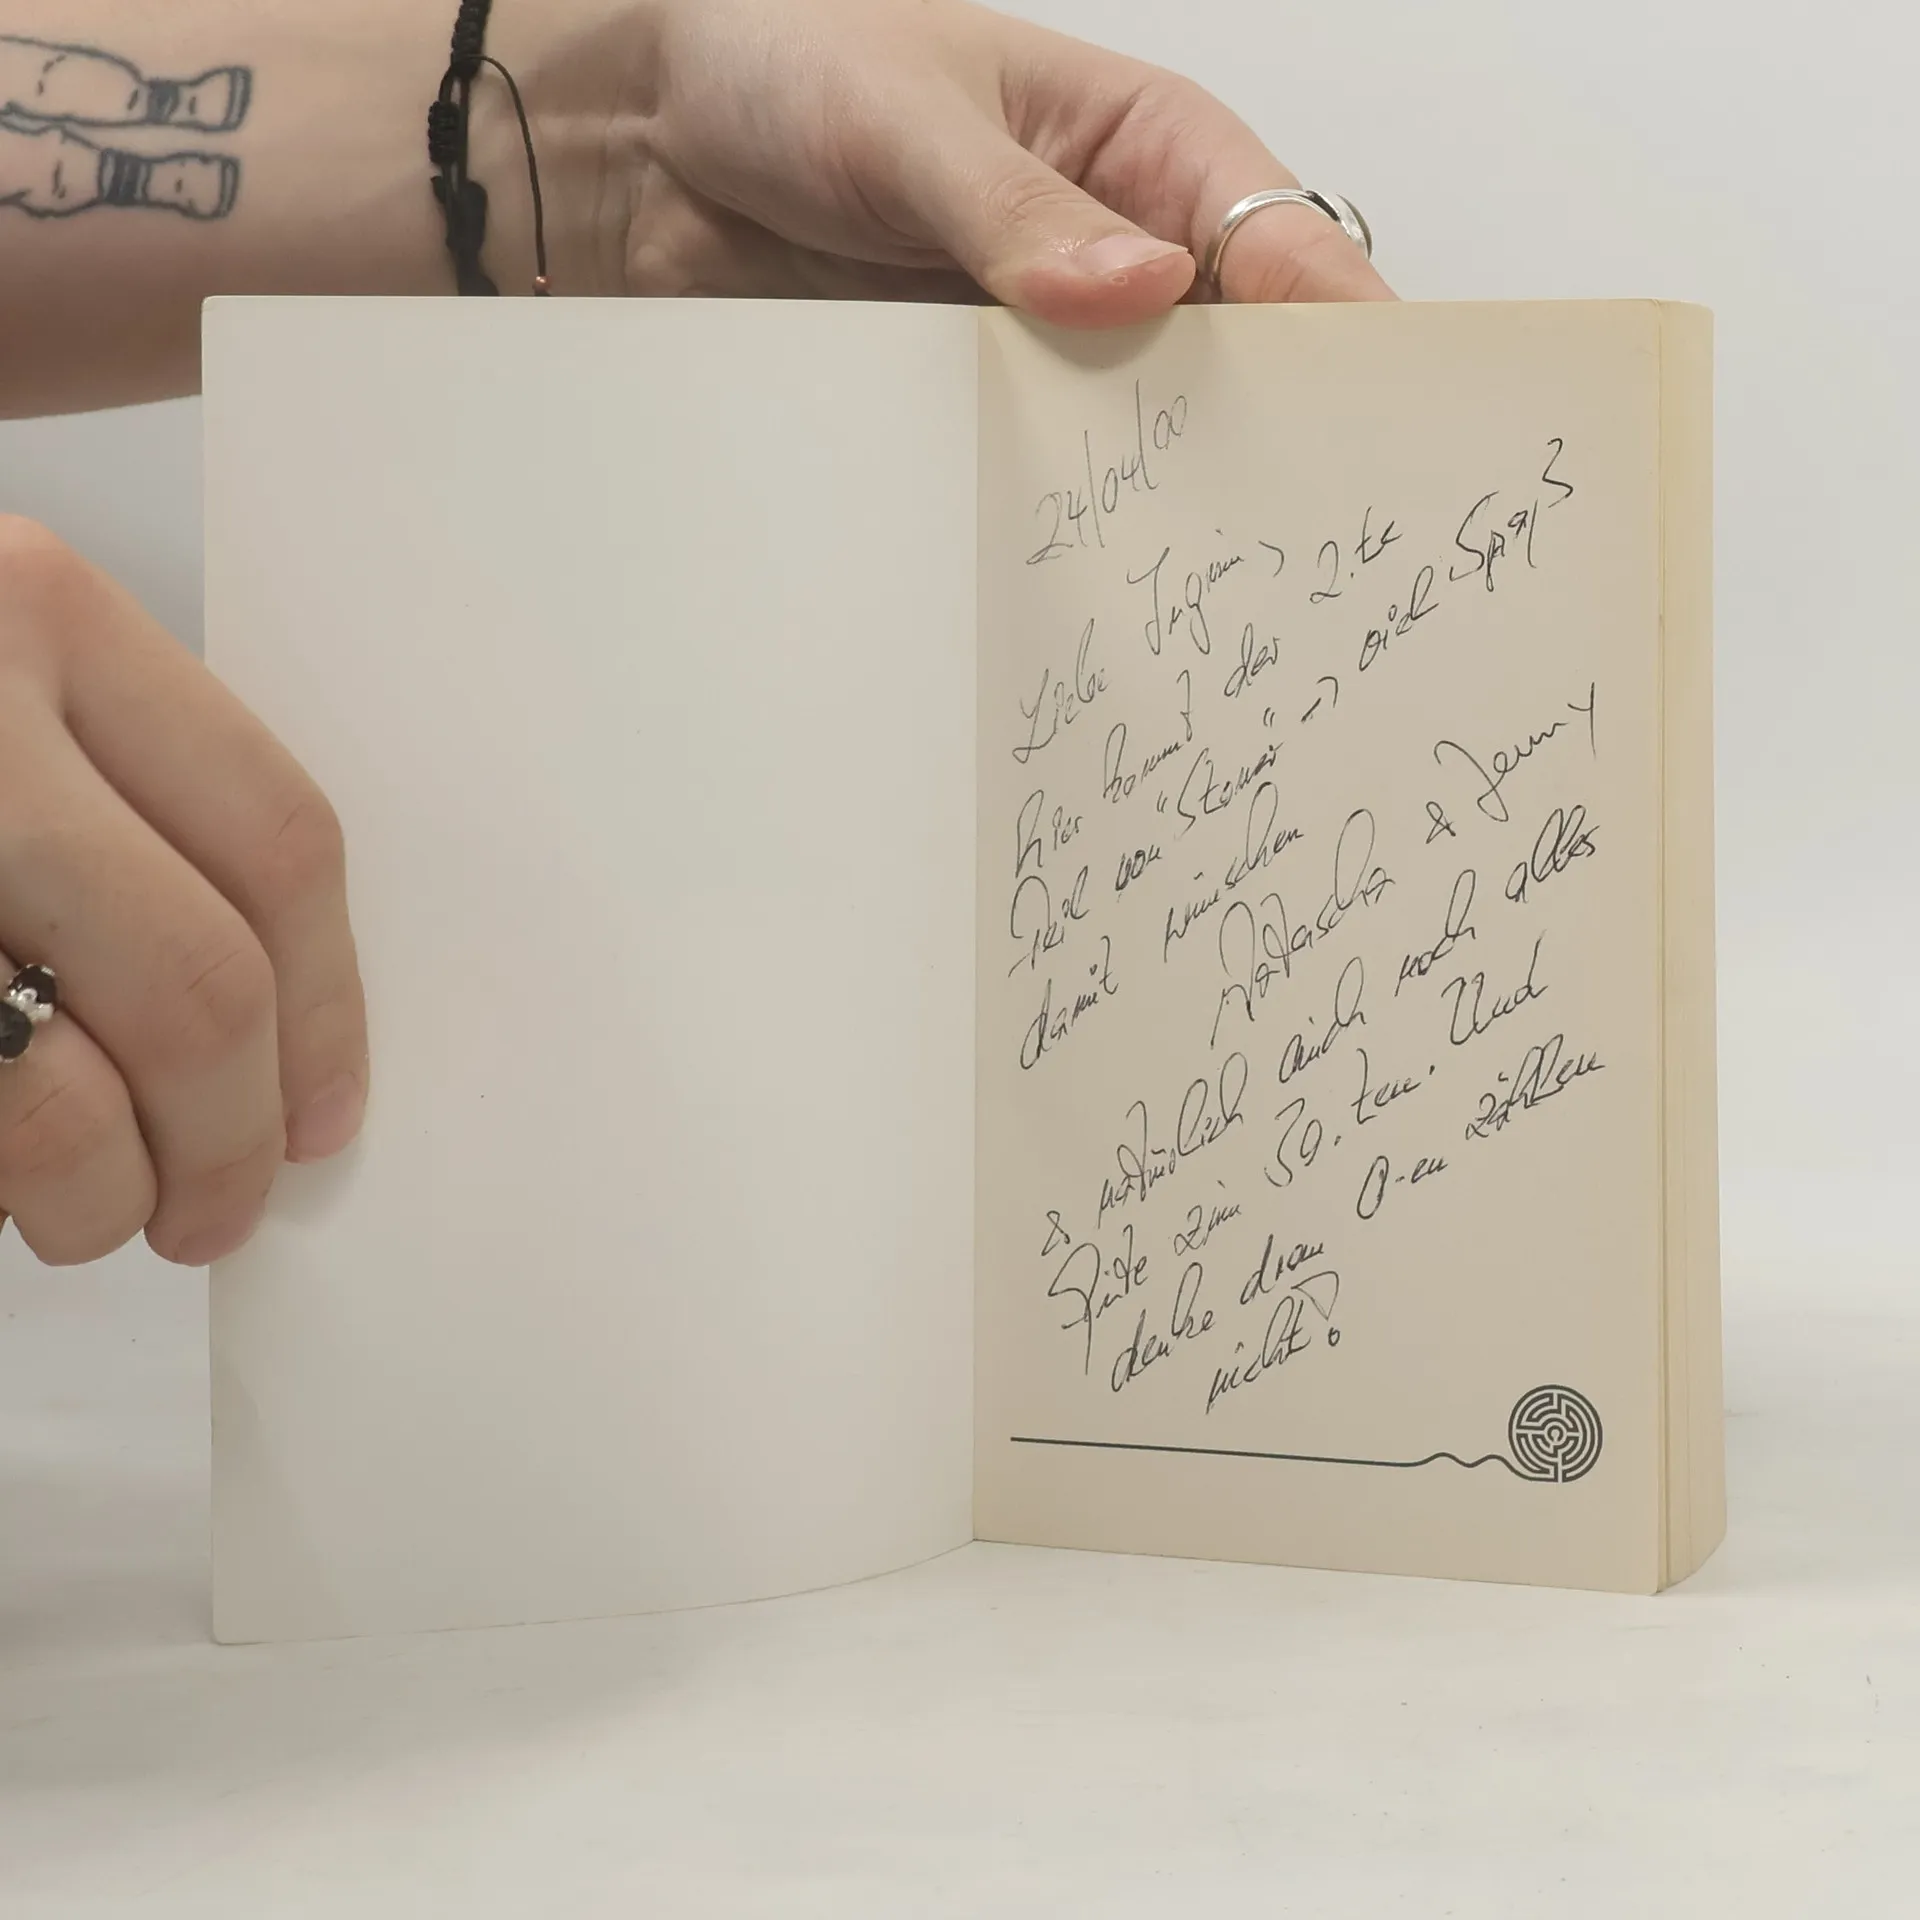 24/04/00
Liebe
hier kommt der 2.te
Teil von "Stoner" -> viel Spaß
damit wünschen
Natascha & Jenny
& natürlich auch noch alles
Gute zum 30.ten. Und
denke dran 0-en zählen
nicht!